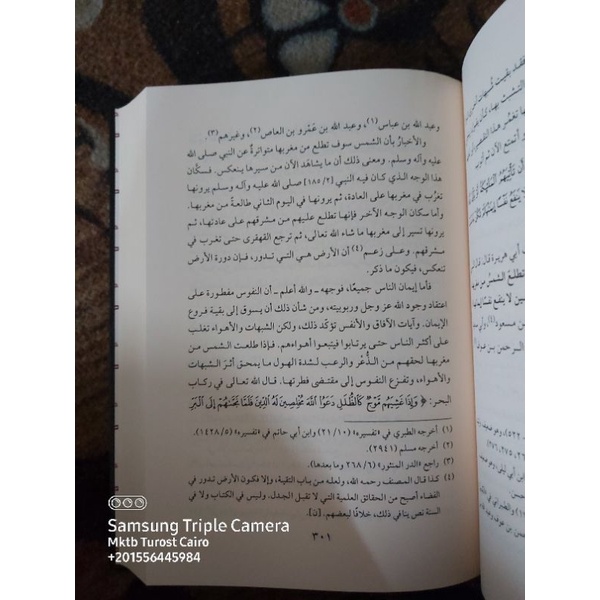 وعبد الله بن عباس(١)، وعبد الله بن عَمْرو بن العاص(٢)، وغيرهم(٣).
والأخبارُ بأن الشمس سوف تطلع من مغربها متواترةٌ عن النبي صلى الله
عليه وآله وسلم. ومعنى ذلك أن ما يشاهَد الآن من سيرها ينعكس. فسكَّان
هذا الوجه الذي كان فيه النبي [٢/ ١٨٥] صلى الله عليه وآله وسلم يرونها
تغرُب في مغربها على العادة، ثم يرونها في اليوم الثاني طالعةً من مغربها.
وأما سكان الوجه الآخر فإنها تطلع عليهم من مشرقهم على عادتها، ثم
يرونها تسير إلى مغربها ما شاء الله تعالى، ثم ترجع القهقرى حتى تغرب في
مشرقهم. وعلى زعم(٤) أن الأرض هي التي تدور، فإن دورة الأرض
تنعكس، فيكون ما ذكر.
فأما إيمان الناس جميعًا، فوجهه ـ والله أعلم ـ أن النفوس مفطورة على
اعتقاد وجود الله عز وجل وربوبيته، ومن شأن ذلك أن يسوق إلى بقية فروع
الإيمان. وآيات الآفاق والأنفس تؤكد ذلك، ولكن الشبهات والأهواء تغلب
على أكثر الناس حتى يرتابوا فيتبعوا أهواءهم. فإذا طلعت الشمس من
مغربها لحقهم من الذُّعْر والرعب لشدة الهول ما يمحق أثرَ الشبهات
والأهواء، وتفزع النفوس إلى مقتضى فطرتها. قال الله تعالى في ركاب
البحر: ﴿وَإِذَا غَشِيَهُم مَّوْجٌ كَالظُّلَلِ دَعَوُا اللَّهَ مُخْلِصِينَ لَهُ الدِّينَ فَلَمَّا نَجَّاهُمْ إِلَى الْبَرِّ
(١) أخرجه الطبري في «تفسيره» (١٠/ ٢١) وابن أبي حاتم في «تفسيره» (٥/ ١٤٢٨).
(٢) أخرجه مسلم (٢٩٤١).
(٣) راجع «الدر المنثور» (٦/ ٢٦٨ وما بعدها).
(٤) كذا قال المصنف رحمه الله، ولعله من باب التقية، وإلا فكون الأرض تدور في
الفضاء أصبح من الحقائق العلمية التي لا تقبل الجدل. وليس في الكتاب ولا في
السنة نص ينافي ذلك، خلافًا لبعضهم. [ن].
٣٠١
Samsung Triple Camera
Mktb Turost Cairo
+201556445984